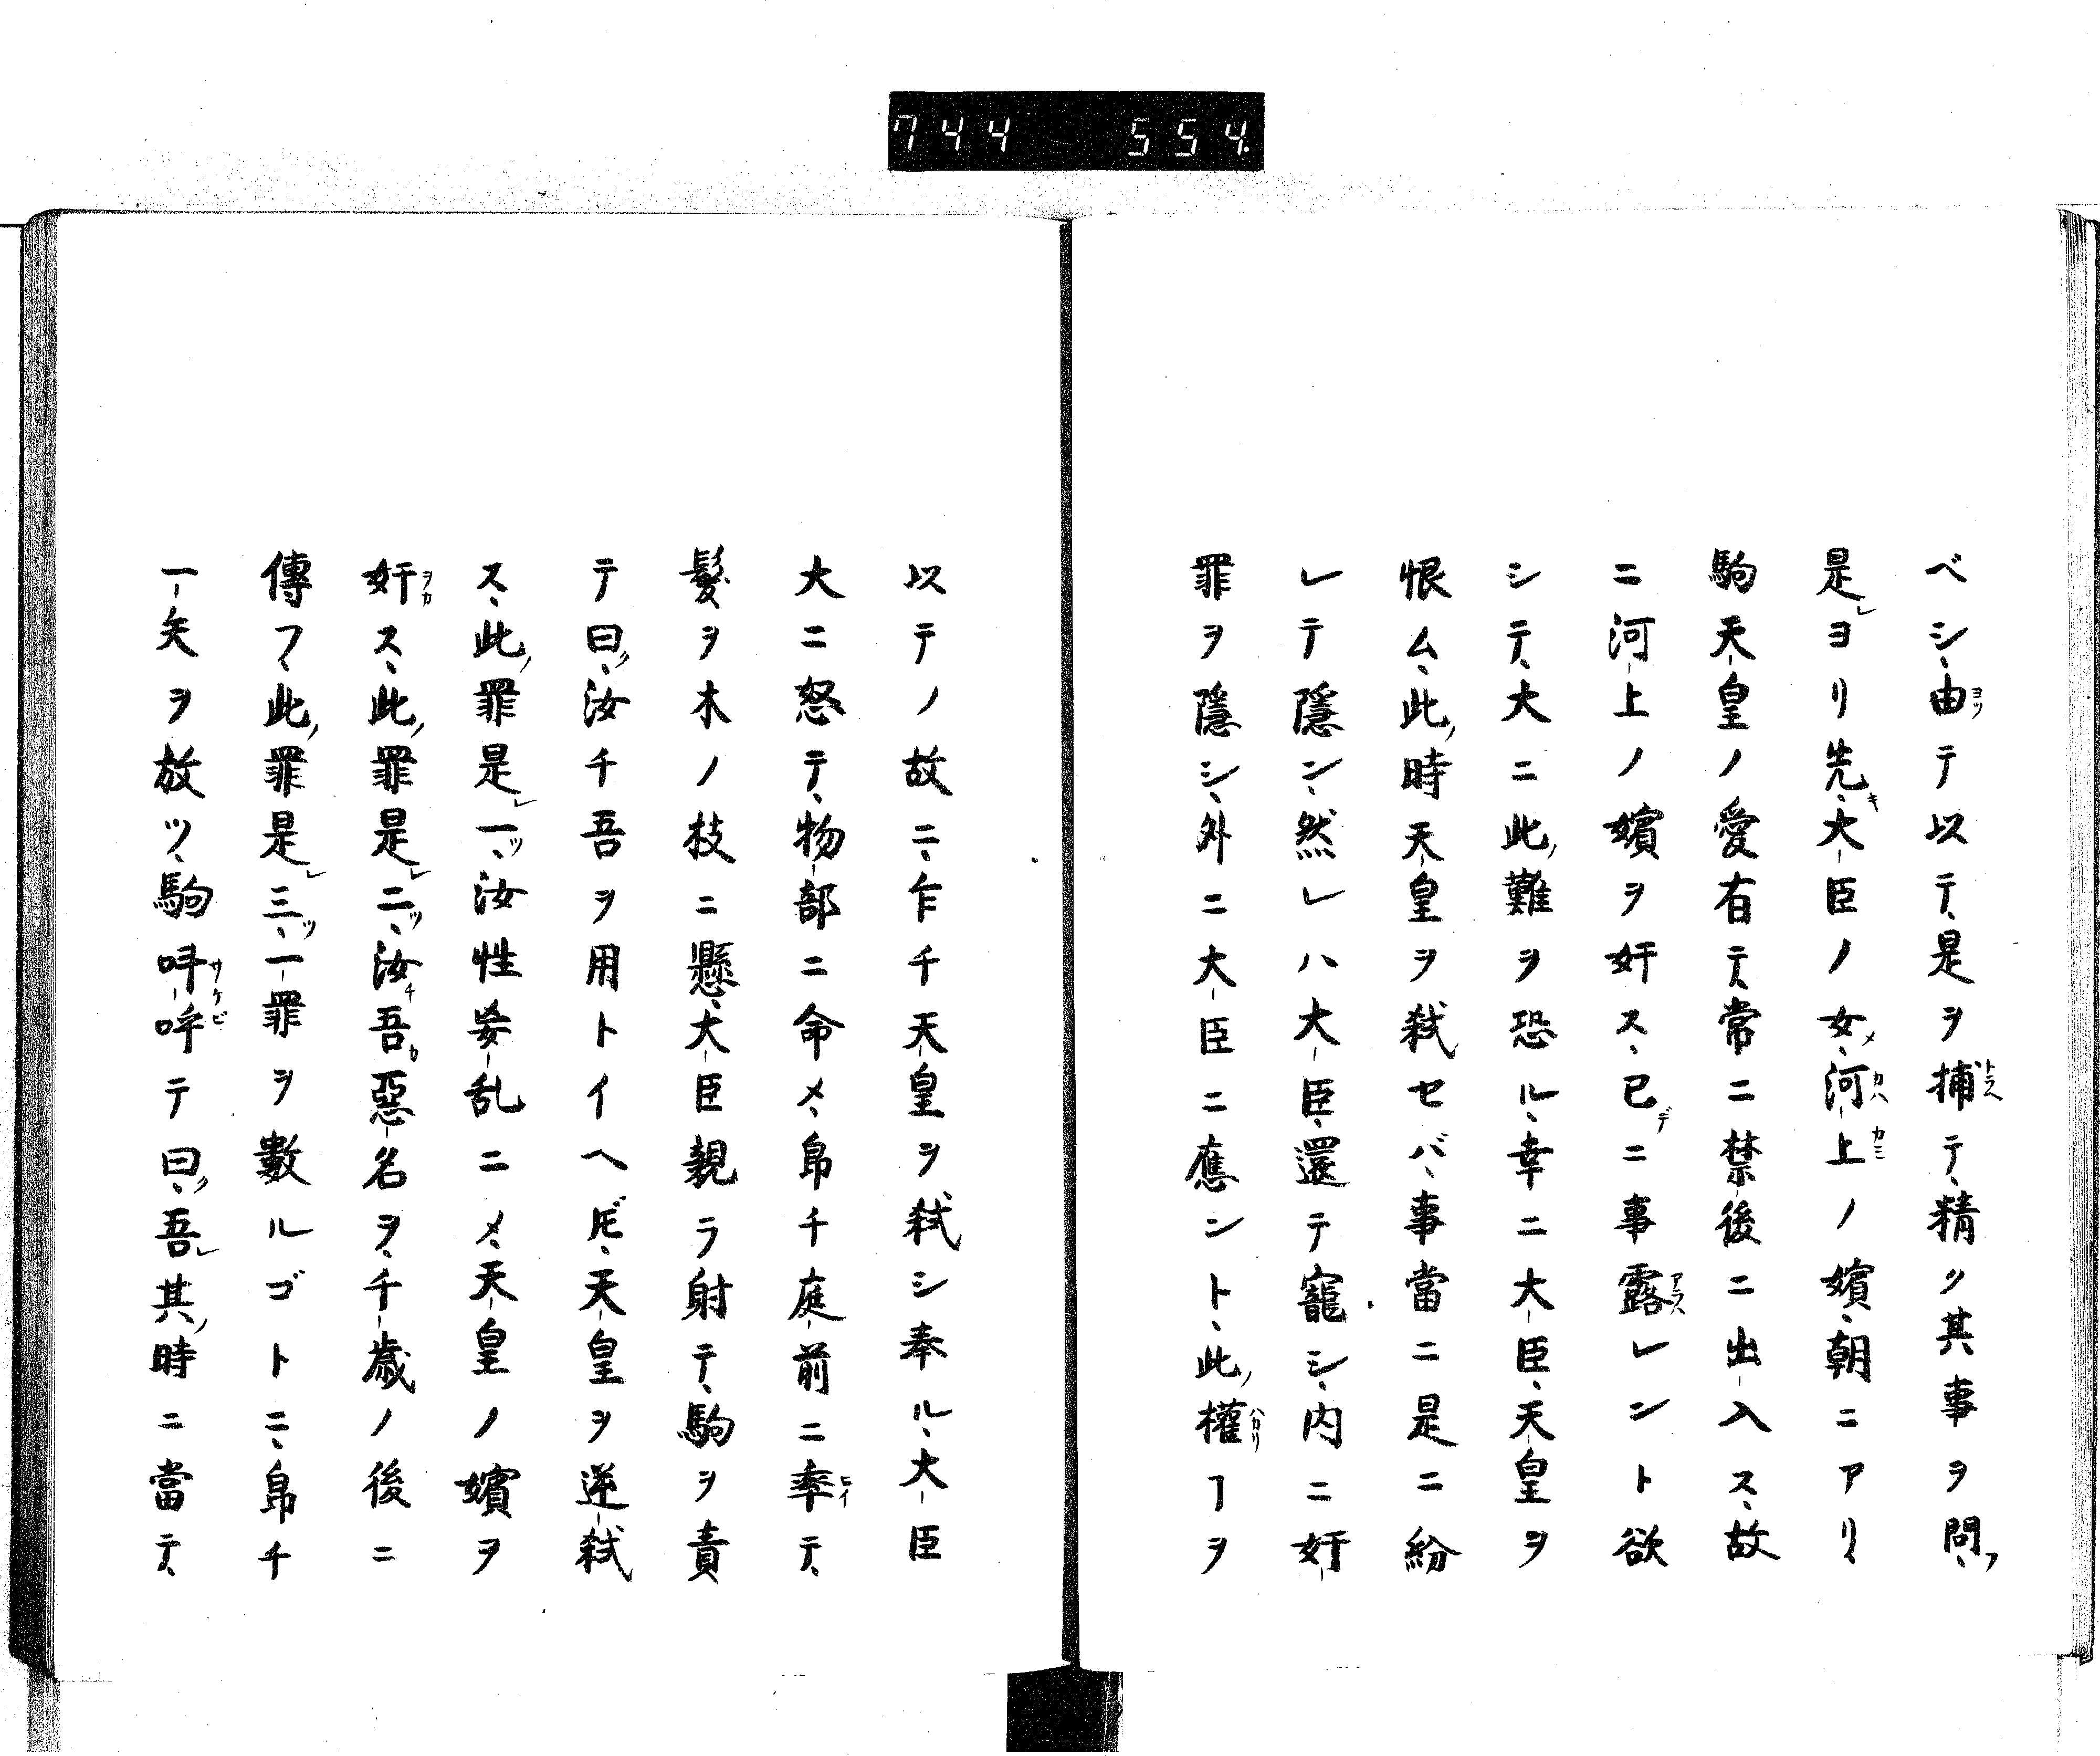 744 554.
ベシ、由テ以テ、是ヲ捕テ、精ク其事ヲ問、
是ヨリ先、大臣ノ女、河上ノ嬪、朝ニアリ、
駒天皇ノ愛有テ、常ニ禁後ニ出入ス、故
ニ河上ノ嬪ヲ奸ス、已ニ事露レント欲
シテ、大ニ此難ヲ恐ル、幸ニ大臣、天皇ヲ
恨ム、此時天皇ヲ弑セバ、事當ニ是ニ紛
レテ隱ン、然レハ大臣、還テ寵シ、内ニ奸
罪ヲ隱シ、外ニ大臣ニ應ント、此權ヿヲ
以テノ故ニ、乍チ天皇ヲ弑シ奉ル、大臣
大ニ怒テ、物部ニ命メ、帛チ庭前ニ牽テ、
髮ヲ木ノ枝ニ懸、大臣親ラ射テ、駒ヲ責
テ曰、汝チ吾ヲ用トイヘ𪜈、天皇ヲ逆弑
ス、此罪是一、汝性妄乱ニメ、天皇ノ嬪ヲ
奸ス、此罪是二、汝吾惡名ヲ、千歳ノ後ニ
傳フ、此罪是三、一罪ヲ數ルゴトニ、帛チ
一矢ヲ放ツ、駒呌呼テ曰、吾其時ニ當テ、